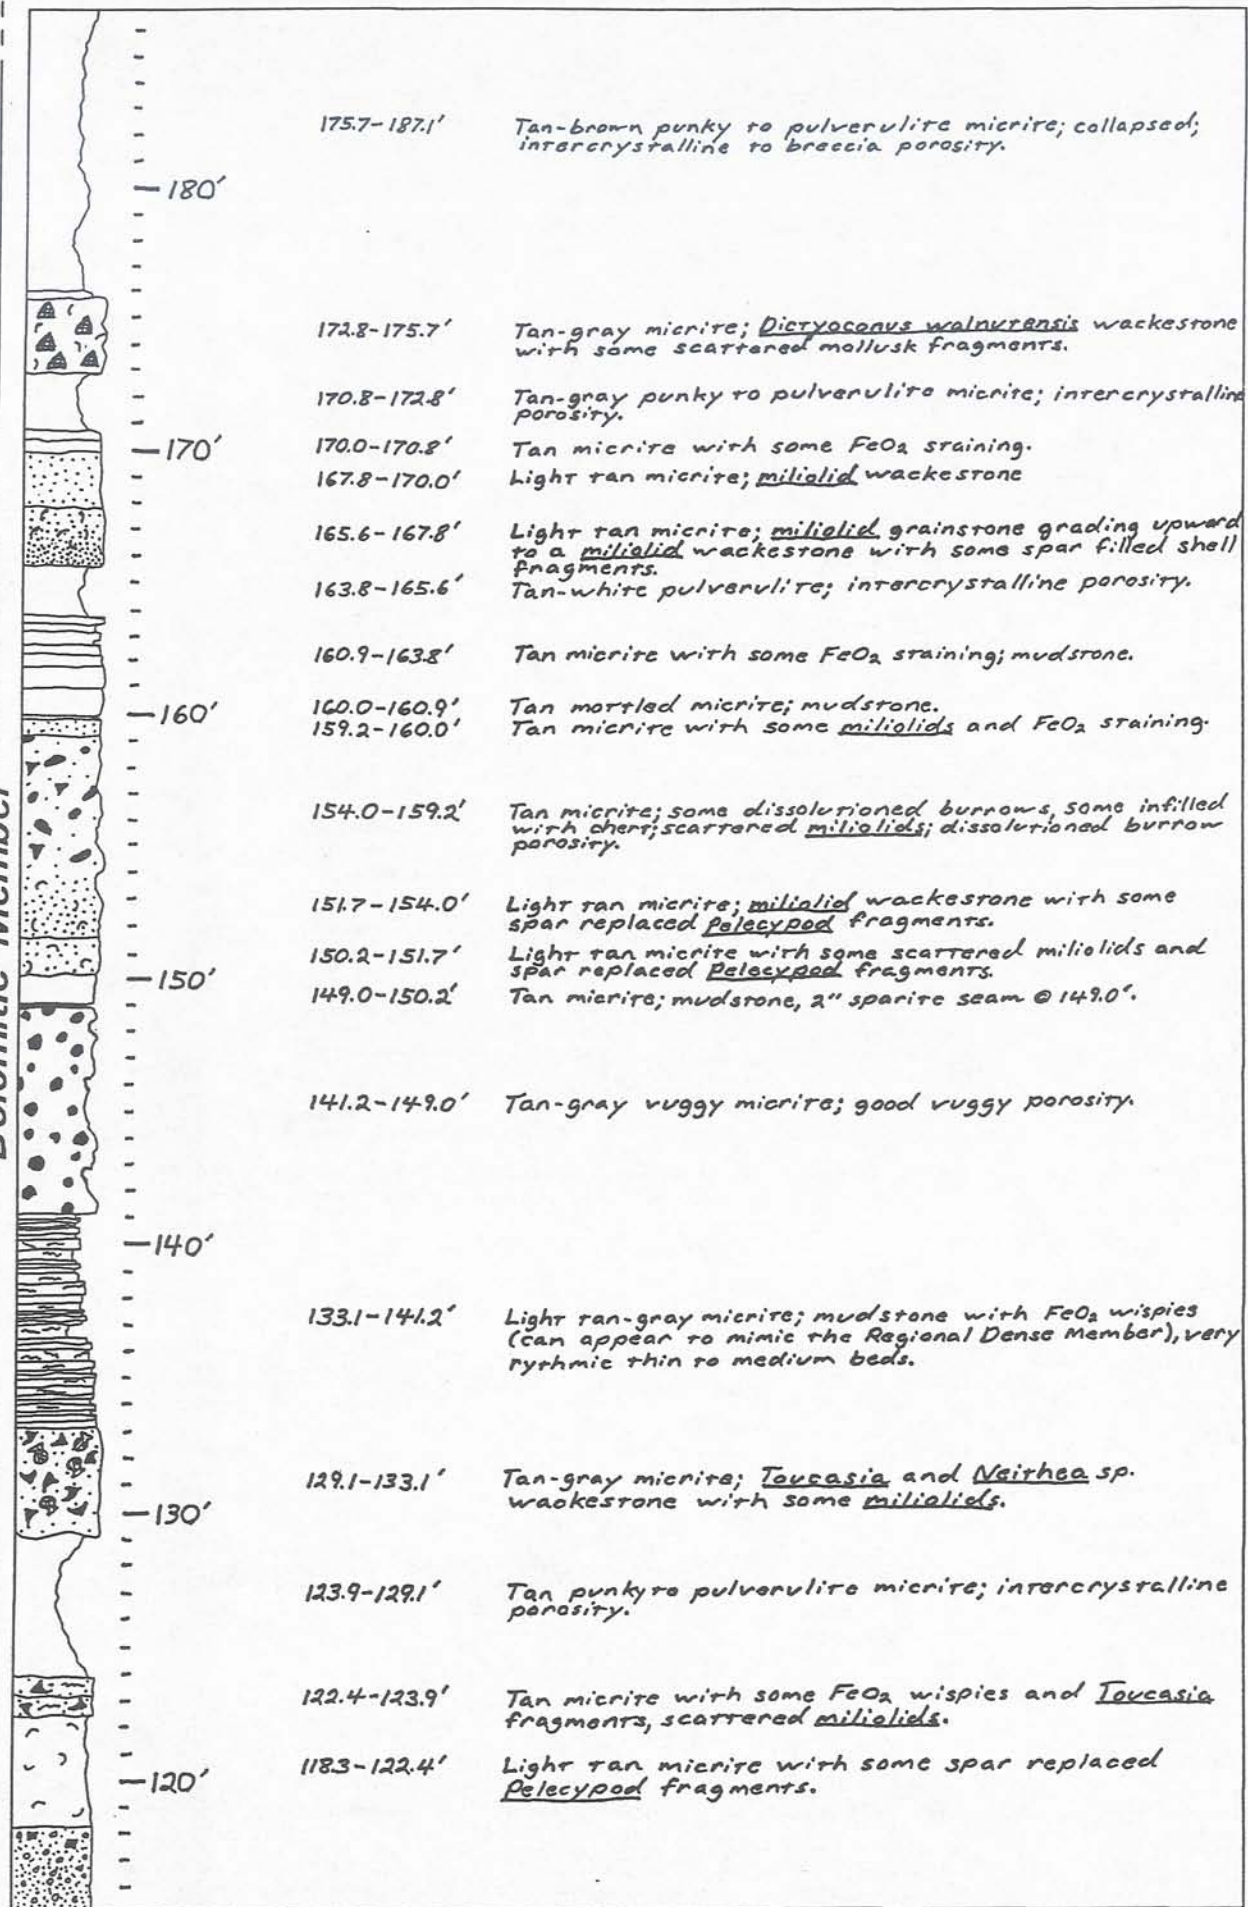 175.7-187.1' Tan-brown punky to pulverulite micrite; collapsed;
intercrystalline to breccia porosity.
180'
172.8-175.7' Tan-gray micrite; Dictyoconus walnutensis wackestone
with some scattered mollusk fragments.
170.8-172.8' Tan-gray punky to pulverulite micrite; intercrystalline
porosity.
170'
170.0-170.8' Tan micrite with some FeO2 staining.
167.8-170.0' Light tan micrite; miliolid wackestone
165.6-167.8' Light tan micrite; miliolid grainstone grading upward
to a miliolid wackestone with some spar filled shell
fragments.
163.8-165.6' Tan-white pulverulite; intercrystalline porosity.
160.9-163.8' Tan micrite with some FeO2 staining; mudstone.
160'
160.0-160.9' Tan mottled micrite; mudstone.
159.2-160.0' Tan micrite with some miliolids and FeO2 staining.
154.0-159.2' Tan micrite; some dissolutioned burrows, some infilled
with chert; scattered miliolids; dissolutioned burrow
porosity.
151.7-154.0' Light tan micrite; miliolid wackestone with some
spar replaced Pelecypod fragments.
150.2-151.7' Light tan micrite with some scattered miliolids and
spar replaced Pelecypod fragments.
150'
149.0-150.2' Tan micrite; mudstone, 2" sparite seam @ 149.0'.
141.2-149.0' Tan-gray vuggy micrite; good vuggy porosity.
140'
133.1-141.2' Light tan-gray micrite; mudstone with FeO2 wispies
(can appear to mimic the Regional Dense Member), very
rythmic thin to medium beds.
129.1-133.1' Tan-gray micrite; Toucasia and Neithea sp.
wackestone with some miliolids.
130'
123.9-129.1' Tan punky to pulverulite micrite; intercrystalline
porosity.
122.4-123.9' Tan micrite with some FeO2 wispies and Toucasia
fragments, scattered miliolids.
118.3-122.4' Light tan micrite with some spar replaced
Pelecypod fragments.
120'
Member